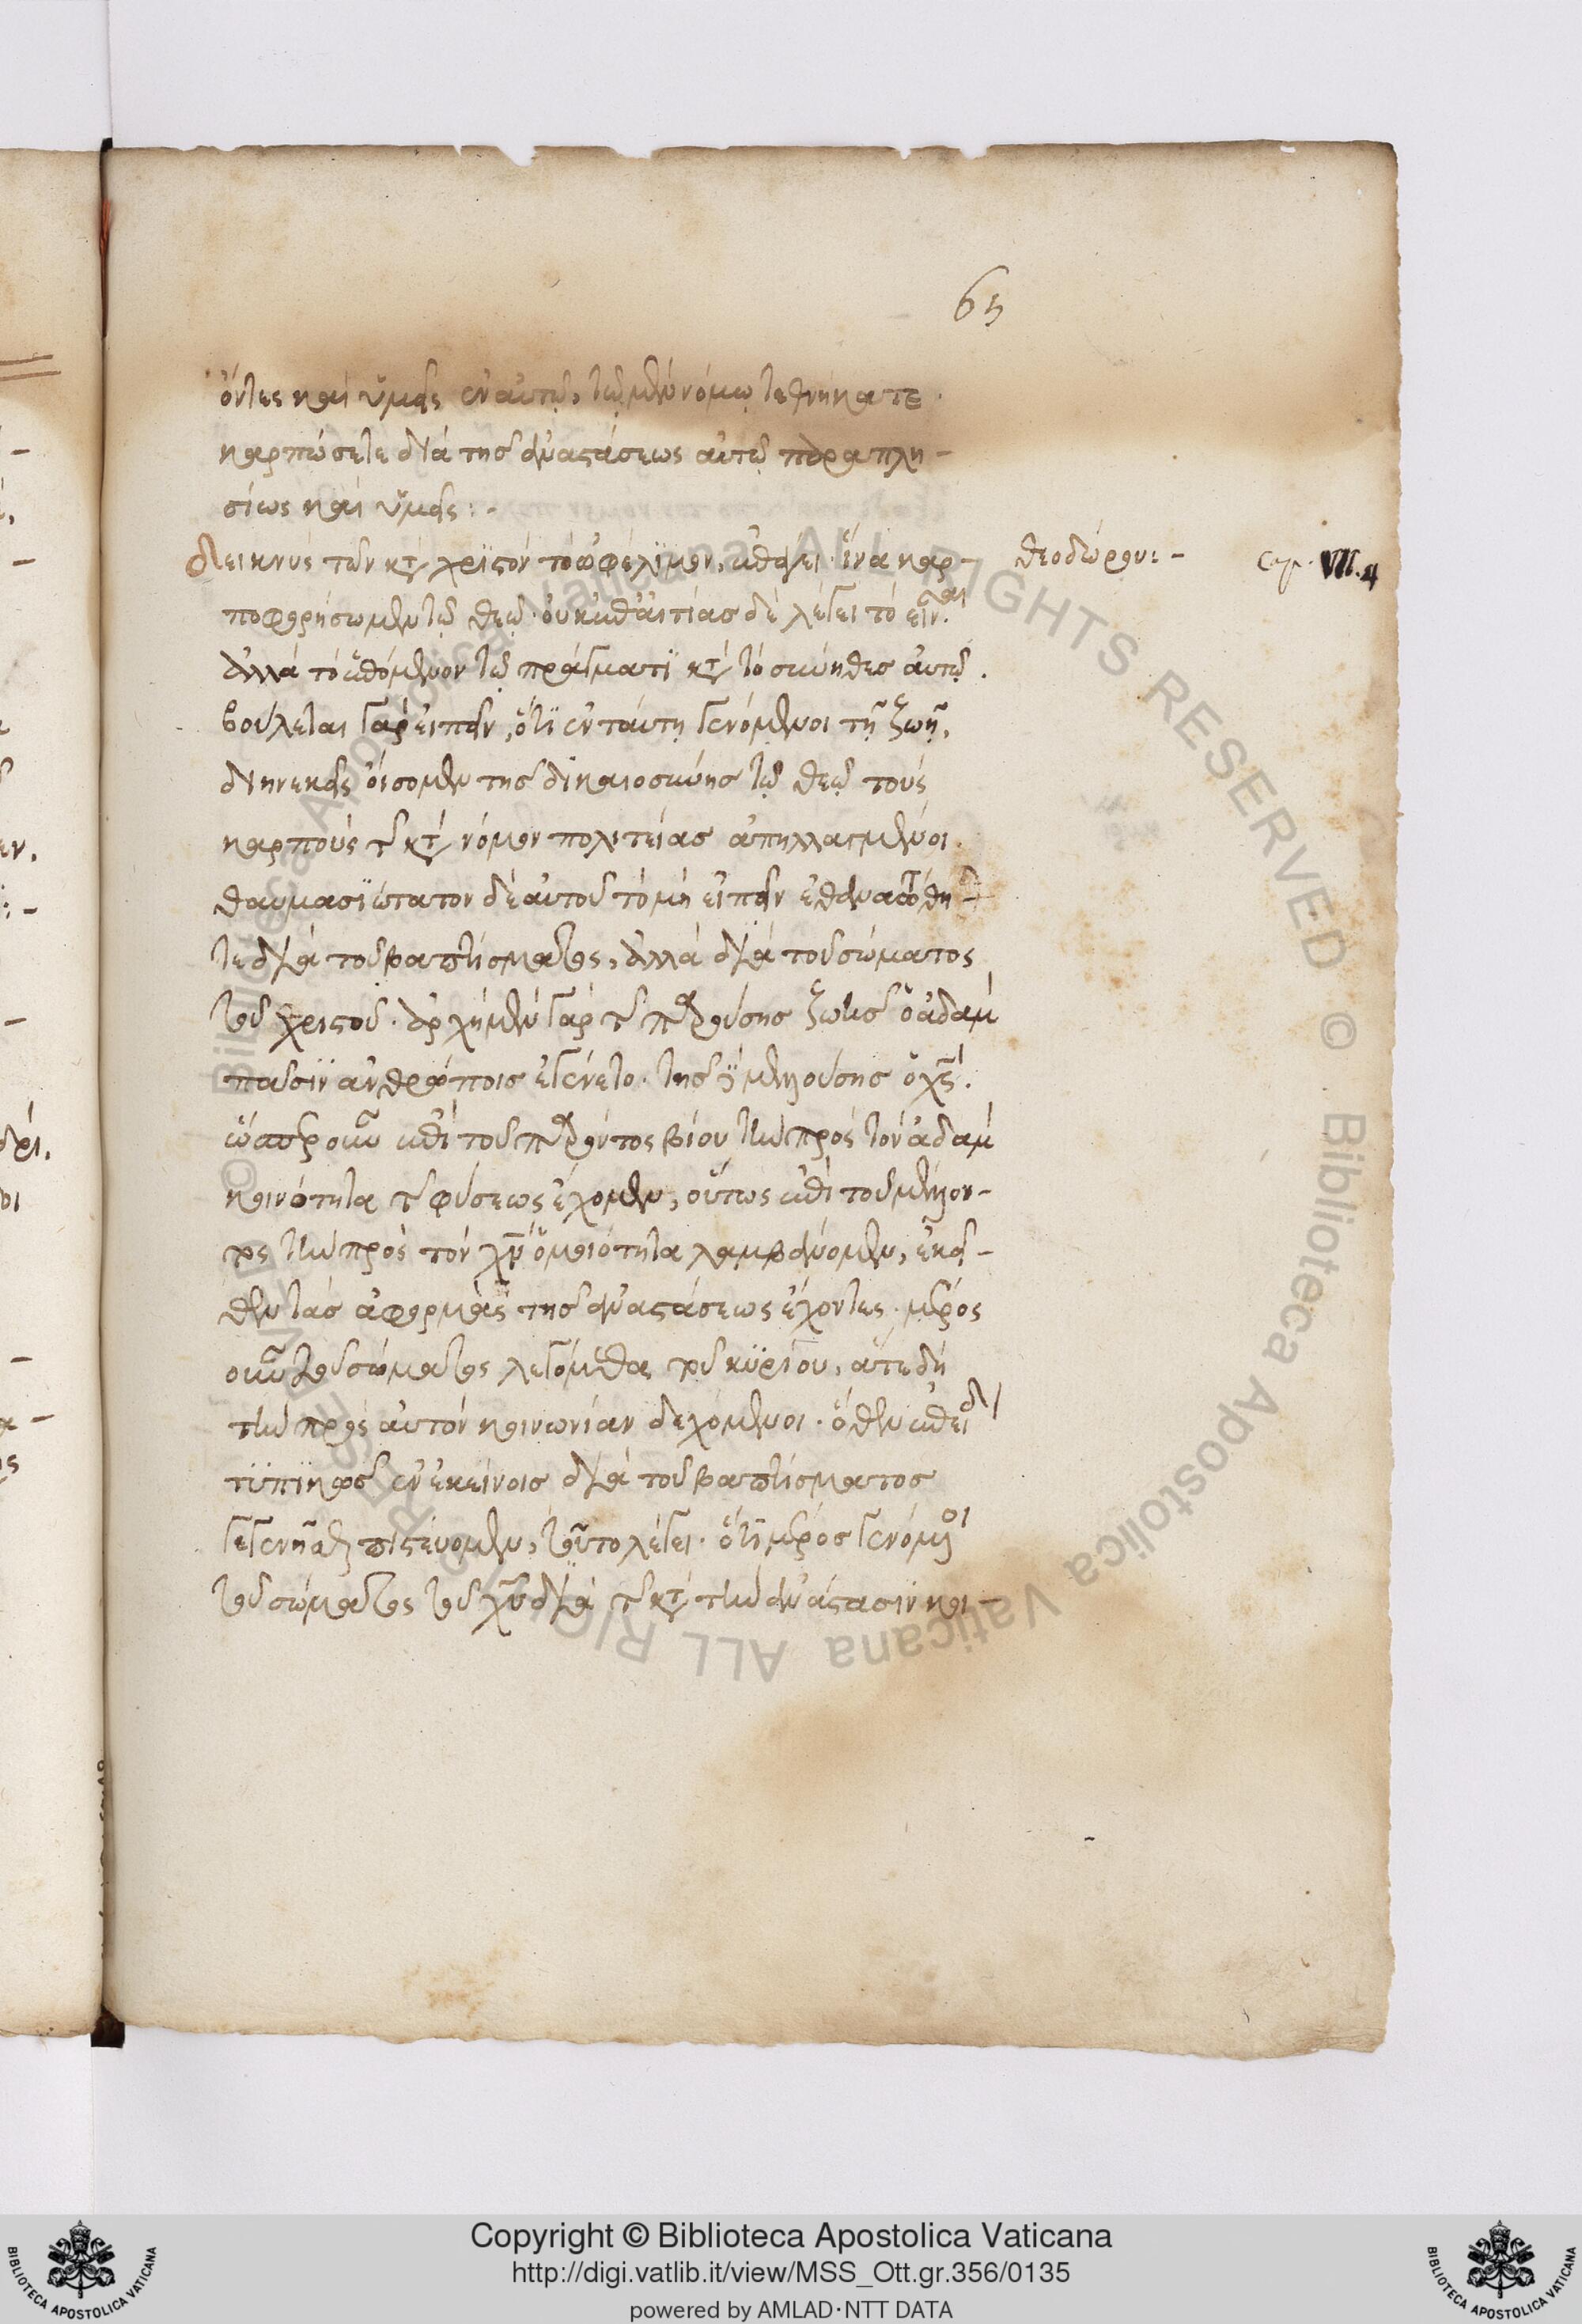 65
ὄντες καὶ ὑμεῖς ἐν αὐτῷ, τῷ μὲν νόμῳ τεθνήκατε.
καρπώσετε διὰ τῆς ἀναστάσεως αὐτῷ παραπλη-
σίως καὶ ὑμεῖς:-
Δεικνὺς τῶν κτ χριστὸν τὸ ὠφέλιμον, ἐπάγει ἵνα καρ-
ποφορήσωμεν τῷ θεῷ. οὐκ ἐπ αἰτίας δὲ λέγει τὸ εἶναι
ἀλλὰ τὸ ἑπόμενον τῷ πράγματι κτ τὸ σύνηθες αὐτῷ.
βούλεται γὰρ εἰπεῖν, ὅτι ἐν ταύτῃ γενόμενοι τῇ ζωῇ,
διηνεκεῖς οἴσομεν τῆς δικαιοσύνης τῷ θεῷ τοὺς
καρποὺς τῆς κτ νόμον πολιτείας ἀπηλλαγμένοι.
θαυμασιώτατον δὲ αὐτοῦ τὸ μὴ εἰπεῖν ἐθανατώθη-
τε διὰ τοῦ βαπτίσματος, ἀλλὰ διὰ τοῦ σώματος
τοῦ χριστοῦ. ἀρχὴ μὲν γὰρ τῆς παρούσης ζωῆς ὁ ἀδαμ
πᾶσιν ἀνθρώποις ἐγένετο. τῆς μελλούσης ὁ χς.
ὥσπερ οὖν ἐπὶ τοῦ παρόντος βίου τὴν πρὸς τὸν ἀδαμ
κοινότητα τῆς φύσεως ἔχομεν, οὕτως ἐπὶ τοῦ μέλλον-
τος τὴν πρὸς τὸν χν ὁμοιότητα λαμβάνομεν, ἐκεῖ-
θεν τὰς ἀφορμὰς τῆς ἀναστάσεως ἔχοντες. μέρος
οὖν τοῦ σώματος λεγόμεθα τοῦ κυρίου, ἅτε δὴ
τὴν πρὸς αὐτὸν κοινωνίαν δεχόμενοι. ὅθεν ἐπειδὴ
τυπικῶς ἐν ἐκείνοις διὰ τοῦ βαπτίσματος
γεγενῆσθαι πιστεύομεν, τοῦτο λέγει. ὅτι μέρος γενόμενοι
τοῦ σώματος τοῦ χυ διὰ τῆς κτ τὴν ἀνάστασιν κοι-
θεοδώρου:-
Cap. VII. 4
Copyright © Biblioteca Apostolica Vaticana
http://digi.vatlib.it/view/MSS_Ott.gr.356/0135
powered by AMLAD·NTT DATA